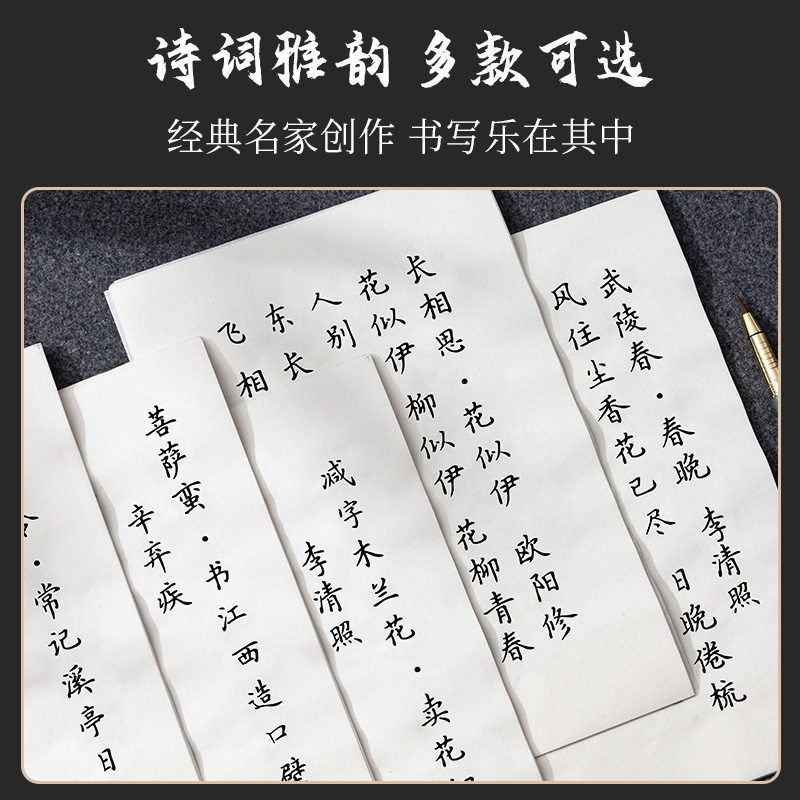 诗词雅韵 多款可选
经典名家创作 书写乐在其中
武陵春·春晚 李清照
风住尘香花已尽 日晚倦梳
长相思·花似伊 欧阳修
花似伊 柳似伊 花柳青春
人别
东长
飞相
减字木兰花·卖花
李清照
菩萨蛮·书江西造口壁
辛弃疾
令·常记溪亭日